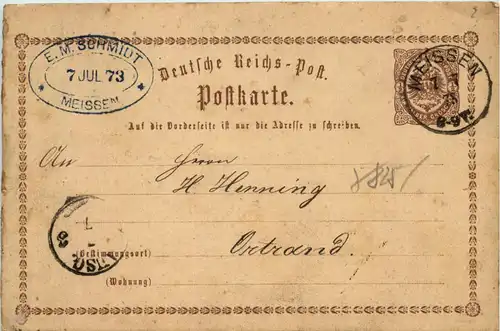 E. M. SCHMIDT
7 JUL 73
MEISSEN
Deutsche Reichs-Post.
Postkarte.
MEISSEN
7
8-9V.
Auf die Vorderseite ist nur die Adresse zu schreiben.
An Herrn
H Henning
(Bestimmungsort) Ortrand.
(Wohnung)